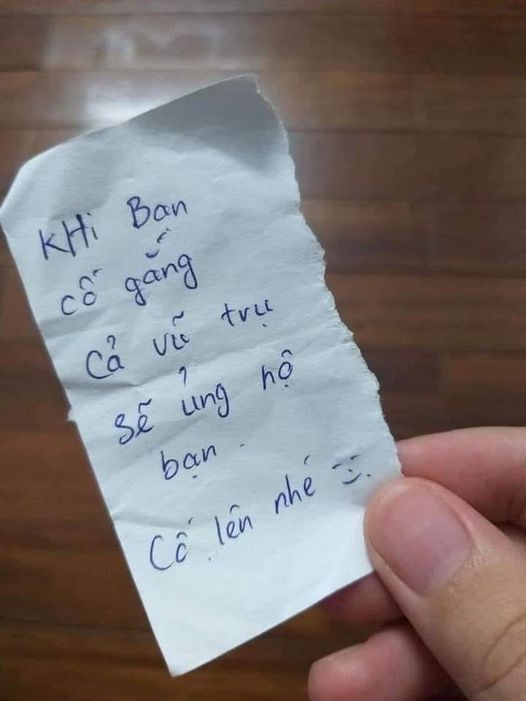 KHi Bạn
cố gắng
Cả vũ trụ
sẽ ủng hộ
bạn.
Cố lên nhé :)